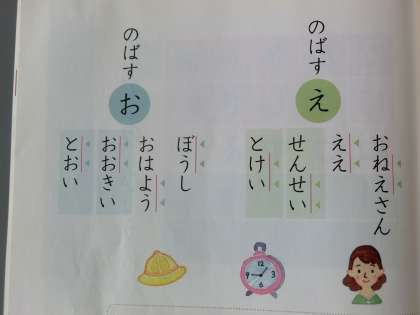 のばす
え
おねえさん
ええ
せんせい
とけい
のばす
お
ぼうし
おはよう
おおきい
とおい